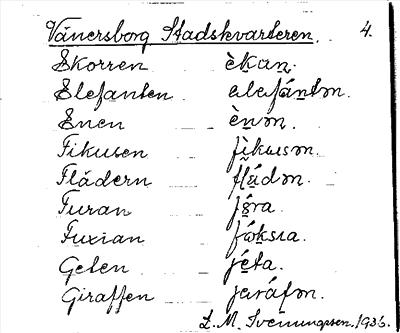 Vänersborg Stadskvarteren. 4.
Ekorren èkaṉ.
Elefanten elefánt̠ən.
Enen èṉən.
Fikusen fìkɯsən.
Flädern flǽdən.
Furan fùra.
Fuxian fɷ́ksɩa.
Geten jéta.
Giraffen jɩráfən.
L. M. Svenungsson. 1936.